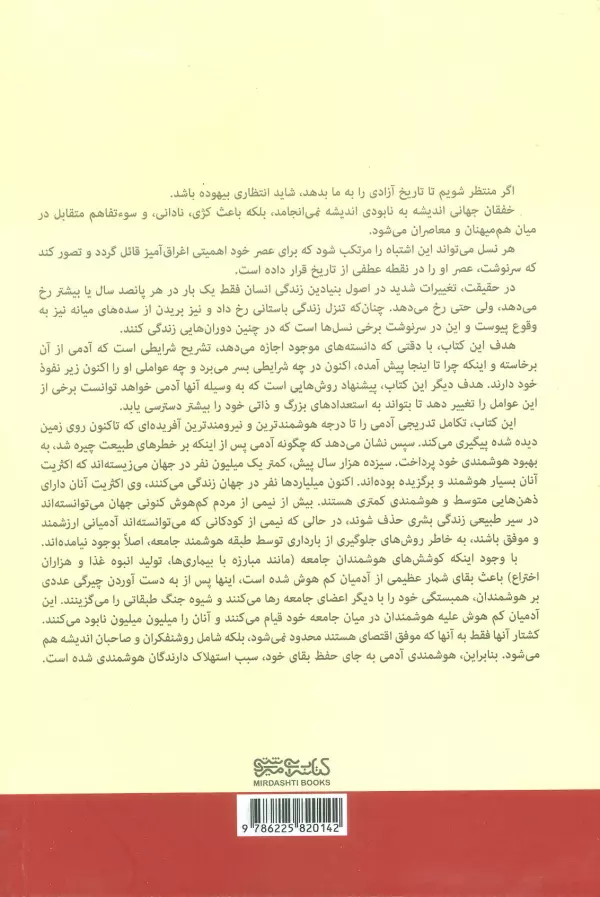 اگر منتظر شویم تا تاریخ آزادی را به ما بدهد، شاید انتظاری بیهوده باشد.
خفقان جهانی اندیشه به نابودی اندیشه نمی‌انجامد، بلکه باعث کژی، نادانی، و سوءتفاهم متقابل در
میان هم‌میهنان و معاصران می‌شود.
هر نسل می‌تواند این اشتباه را مرتکب شود که برای عصر خود اهمیتی اغراق‌آمیز قائل گردد و تصور کند
که سرنوشت، عصر او را در نقطه عطفی از تاریخ قرار داده است.
در حقیقت، تغییرات شدید در اصول بنیادین زندگی انسان فقط یک بار در هر پانصد سال یا بیشتر رخ
می‌دهد، ولی حتی رخ می‌دهد. چنان‌که تنزل زندگی باستانی رخ داد و نیز بریدن از سده‌های میانه نیز به
وقوع پیوست و این در سرنوشت برخی نسل‌ها است که در چنین دوران‌هایی زندگی کنند.
هدف این کتاب، با دقتی که دانسته‌های موجود اجازه می‌دهد، تشریح شرایطی است که آدمی از آن
برخاسته و اینکه چرا تا اینجا پیش آمده، اکنون در چه شرایطی بسر می‌برد و چه عواملی او را اکنون زیر نفوذ
خود دارند. هدف دیگر این کتاب، پیشنهاد روش‌هایی است که به وسیله آنها آدمی خواهد توانست برخی از
این عوامل را تغییر دهد تا بتواند به استعدادهای بزرگ و ذاتی خود را بیشتر دسترسی یابد.
این کتاب، تکامل تدریجی آدمی را تا درجه هوشمندترین و نیرومندترین آفریده‌ای که تاکنون روی زمین
دیده شده پیگیری می‌کند. سپس نشان می‌دهد که چگونه آدمی پس از اینکه بر خطرهای طبیعت چیره شد، به
بهبود هوشمندی خود پرداخت. سیزده هزار سال پیش، کمتر یک میلیون نفر در جهان می‌زیسته‌اند که اکثریت
آنان بسیار هوشمند و برگزیده بوده‌اند. اکنون میلیاردها نفر در جهان زندگی می‌کنند، وی اکثریت آنان دارای
ذهن‌هایی متوسط و هوشمندی کمتری هستند. بیش از نیمی از مردم کم‌هوش کنونی جهان می‌توانسته‌اند
در سیر طبیعی زندگی بشری حذف شوند، در حالی که نیمی از کودکانی که می‌توانسته‌اند آدمیانی ارزشمند
و موفق باشند، به خاطر روش‌های جلوگیری از بارداری توسط طبقه هوشمند جامعه، اصلاً بوجود نیامده‌اند.
با وجود اینکه کوشش‌های هوشمندان جامعه (مانند مبارزه با بیماری‌ها، تولید انبوه غذا و هزاران
اختراع) باعث بقای شمار عظیمی از آدمیان کم هوش شده است، اینها پس از به دست آوردن چیرگی عددی
بر هوشمندان، همبستگی خود را با دیگر اعضای جامعه رها می‌کنند و شیوه جنگ طبقاتی را می‌گزینند. این
آدمیان کم هوش علیه هوشمندان در میان جامعه خود قیام می‌کنند و آنان را میلیون میلیون نابود می‌کنند.
کشتار آنها فقط به آنها که موفق اقتصای هستند محدود نمی‌شود، بلکه شامل روشنفکران و صاحبان اندیشه هم
می‌شود. بنابراین، هوشمندی آدمی به جای حفظ بقای خود، سبب استهلاک دارندگان هوشمندی شده است.
کتابسرای میردشتی
MIRDASHTI BOOKS
9 786225 820142